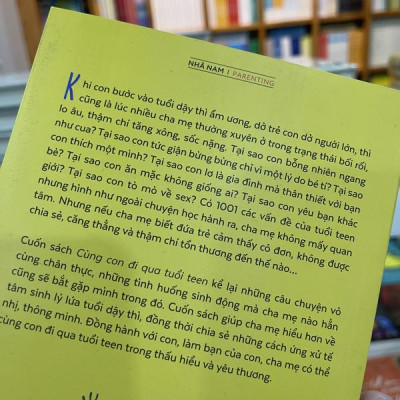 NHÃ NAM | PARENTING
Khi con bước vào tuổi dậy thì ẩm ương, dở trẻ con dở người lớn, thì
cũng là lúc nhiều cha mẹ thường xuyên ở trong trạng thái bối rối,
lo âu, thậm chí tăng xông, sốc nặng. Tại sao con bỗng nhiên ngang
như cua? Tại sao con tức giận bừng bừng chỉ vì một lý do bé tí? Tại sao
con thích một mình? Tại sao con lơ là gia đình mà thân thiết với bạn
bè? Tại sao con ăn mặc không giống ai? Tại sao con yêu bạn khác
giới? Tại sao con tò mò về sex? Có 1001 các vấn đề của tuổi teen
nhưng hình như ngoài chuyện học hành ra, cha mẹ không mấy quan
tâm. Nhưng nếu cha mẹ biết đứa trẻ cảm thấy cô đơn, không được
chia sẻ, căng thẳng và thậm chí tổn thương đến thế nào...
Cuốn sách Cùng con đi qua tuổi teen kể lại những câu chuyện vô
cùng chân thực, những tình huống sinh động mà cha mẹ nào hẳn
cũng sẽ bắt gặp mình trong đó. Cuốn sách giúp cha mẹ hiểu hơn về
tâm sinh lý lứa tuổi dậy thì, đồng thời chia sẻ những cách ứng xử tế
nhị, thông minh. Đồng hành với con, làm bạn của con, cha mẹ có thể
cùng con đi qua tuổi teen trong thấu hiểu và yêu thương.